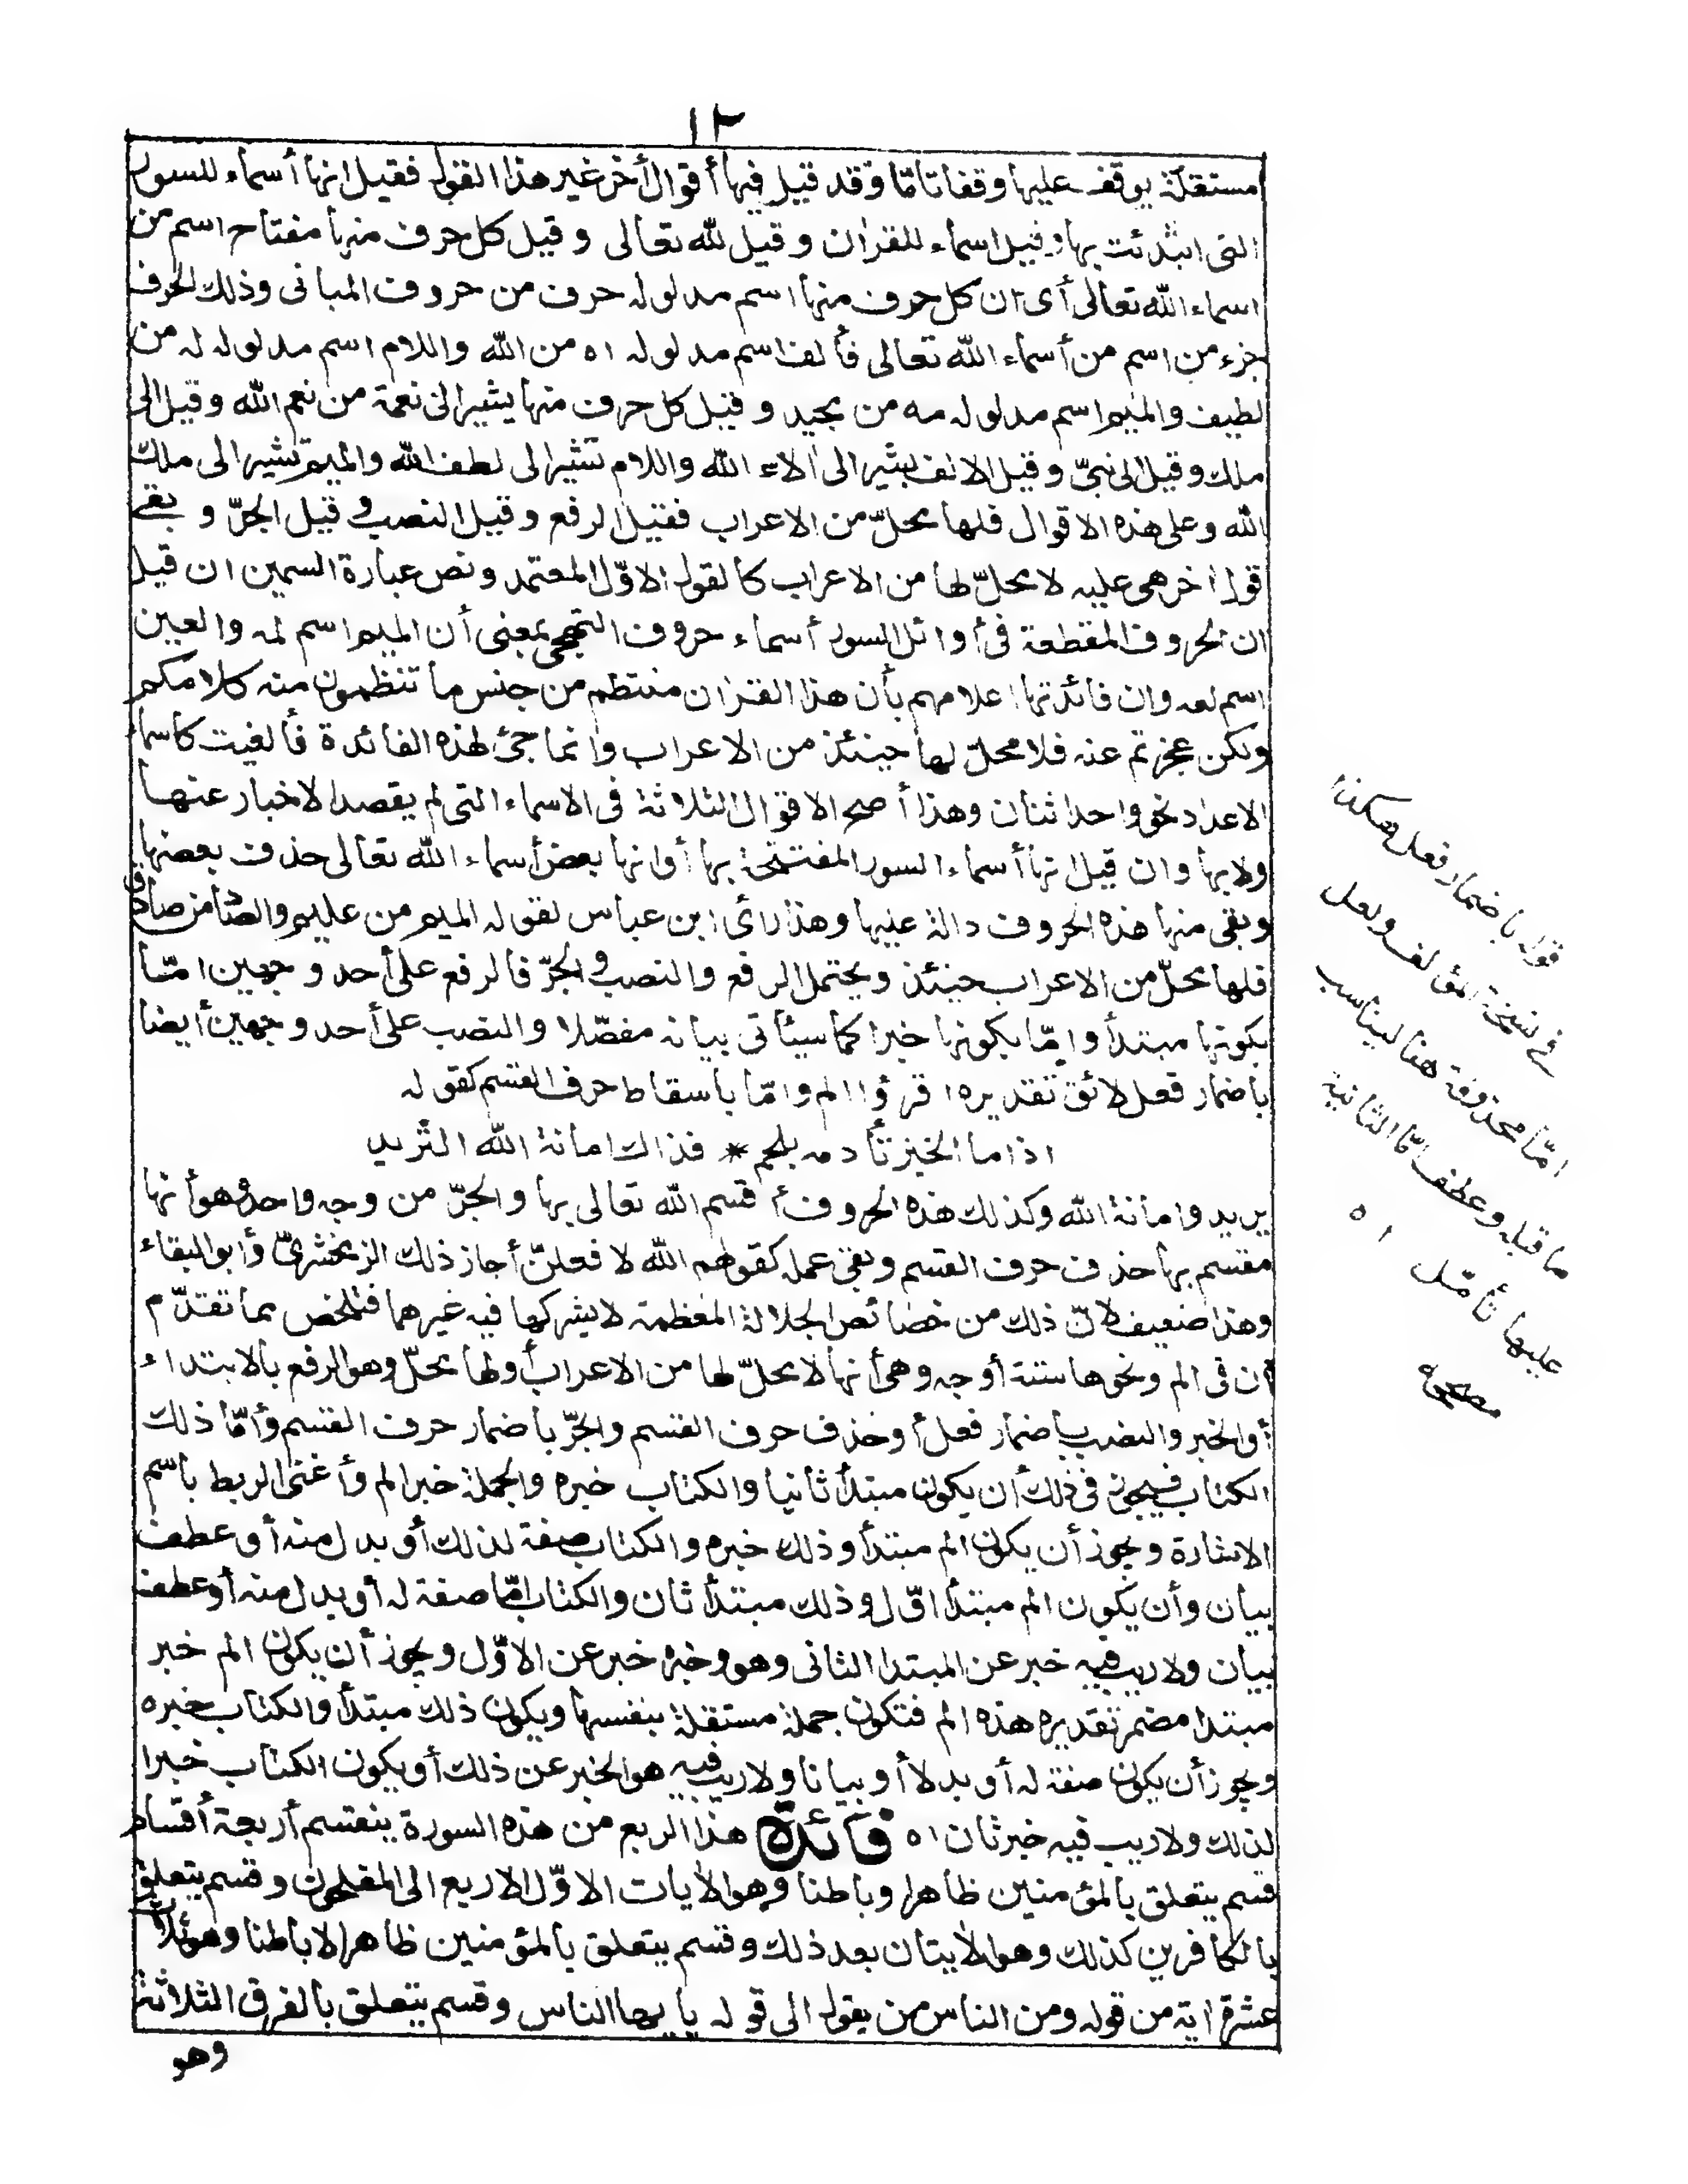 ١٢
مستقلة يوقف عليها وقفا تامّا وقد قيل فيها أقوال أخر غير هذا القول فقيل انها أسماء للسور
التى ابتدئت بها وقيل اسماء للقرآن وقيل لله تعالى وقيل كل حرف منها مفتاح اسم من
اسماء الله تعالى أى ان كل حرف منها اسم مدلوله حرف من حروف المبانى وذلك الحرف
جزء من اسم من أسماء الله تعالى فألف اسم مدلوله اه من الله واللام اسم مدلوله له من
لطيف والميم اسم مدلوله مه من مجيد وقيل كل حرف منها يشير الى نعمة من نعم الله وقيل الى
ملك وقيل الى نبىّ وقيل الالف يشير الى الاء الله واللام تشير الى لطف الله والميم تشير الى ملك
الله وعلى هذه الاقوال فلها محلّ من الاعراب فقيل الرفع وقيل النصب وقيل الجرّ و بقى
قول اخر هى عليه لا محلّ لها من الاعراب كالقول الاوّل المعتمد ونص عبارة السمين ان قيل
ان الحروف المقطعة فى أوائل السور أسماء حروف التهجى بمعنى أن الميم اسم لمه والعين
اسم لعه وان فائدتها اعلامهم بأن هذا القرآن منتظم من جنس ما تنظمون منه كلامكم
ولكن عجزتم عنه فلا محلّ لها حينئذ من الاعراب وانما جئ لهذه الفائدة فألغيت كاسماء
الاعداد نحو واحد اثنان وهذا أصح الاقوال الثلاثة فى الاسماء التى لم يقصد الاخبار عنها
ولا بها وان قيل انها أسماء السور المفتتحة بها أو انها بعض أسماء الله تعالى حذف بعضها
وبقى منها هذه الحروف دالة عليها وهذا رأى ابن عباس لقوله الميم من عليم والصاد من صادق
فلها محلّ من الاعراب حينئذ ويحتمل الرفع والنصب والجرّ فالرفع على أحد وجهين امّا
بكونها مبتدأ وامّا بكونها خبرا كما سيأتى بيانه مفصّلا والنصب على أحد وجهين أيضا
باضمار فعل لائق تقديره اقرؤا الم وامّا باسقاط حرف القسم كقوله
اذا ما الخبز تأدمه بلحم * فذاك امانة الله الثريد
يريد وامانة الله وكذلك هذه الحروف أقسم الله تعالى بها والجرّ من وجه واحد وهو أنها
مقسم بها حذف حرف القسم وبقى عمله كقولهم الله لافعلنّ أجاز ذلك الزمخشرىّ وأبو البقاء
وهذا ضعيف لانّ ذلك من خصائص الجلالة المعظمة لا يشركها فيه غيرهما فتلخص مما تقدّم
أن فى الم ونحوها ستة أوجه وهى أنها لا محلّ لها من الاعراب أو لها محلّ وهو الرفع بالابتداء
أو الخبر والنصب باضمار فعل أو حذف حرف القسم والجرّ باضمار حرف القسم وأمّا ذلك
الكتاب فيجوز فى ذلك أن يكون مبتدأ ثانيا والكتاب خبره والجملة خبر الم وأغنى الربط باسم
الاشارة ويجوز أن يكون الم مبتدأ وذلك خبره والكتاب صفة لذلك أو بدل منه أو عطف
بيان وأن يكون الم مبتدأ اوّل وذلك مبتدأ ثان والكتاب امّا صفة له أو بدل منه أو عطف
بيان ولا ريب فيه خبر عن المبتدا الثانى وهو وخبره خبر عن الاوّل ويجوز أن يكون الم خبر
مبتدا مضمر تقديره هذه الم فتكون جملة مستقلة بنفسها ويكون ذلك مبتدأ والكتاب خبره
ويجوز أن يكون صفة له أو بدلا أو بيانا ولا ريب فيه هو الخبر عن ذلك أو يكون الكتاب خبرا
لذلك ولا ريب فيه خبر ثان اه فائدة هذا الربع من هذه السورة ينقسم أربعة أقسام
قسم يتعلق بالمؤمنين ظاهرا وباطنا وهو الآيات الاوّل الاربع الى المفلحون وقسم يتعلق
بالكافرين كذلك وهو الآيتان بعد ذلك وقسم يتعلق بالمؤمنين ظاهرا لا باطنا وهو ثلاث
عشرة اية من قوله ومن الناس من يقول الى قوله يا يها الناس وقسم يتعلق بالفرق الثلاثة
وهو
قوله باضمار فعل هكذا
فى نسخة المؤلف ولعل
امّا محذوفة هنا ليناسب
ما قبله وعطف امّا الثانية
عليها تأمّل اه
مصححه